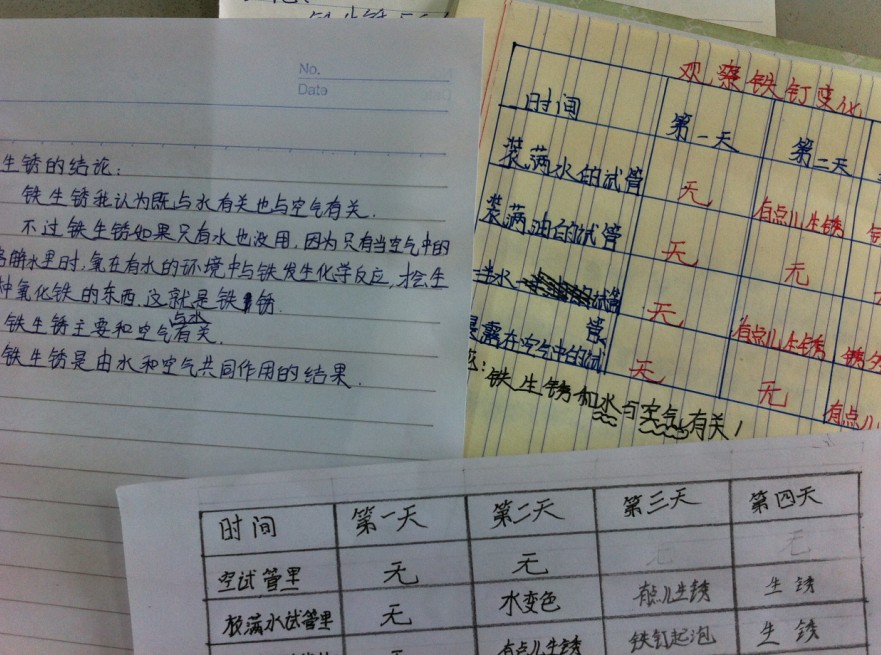 No.
Date
生锈的结论:
铁生锈我认为既与水有关也与空气有关.
不过铁生锈如果只有水也没用,因为只有当空气中的
解水里时,氧在有水的环境中与铁发生化学反应,才会生
种氧化铁的东西.这就是铁锈.
铁生锈主要和空气与水有关.
铁生锈是由水和空气共同作用的结果.
观察铁钉变化
时间 第一天 第二天
装满水的试管 无 有点儿生锈
装满油的试管 无 无
半水 的试管 无 有点儿生锈
暴露在空气中的试管 无 无 有点儿
铁生锈和水与空气有关!
时间 第一天 第二天 第三天 第四天
空试管里 无 无 无 无
极满水试管里 无 水变色 有点儿生锈 生锈
有点儿生锈 铁钉起泡 生锈